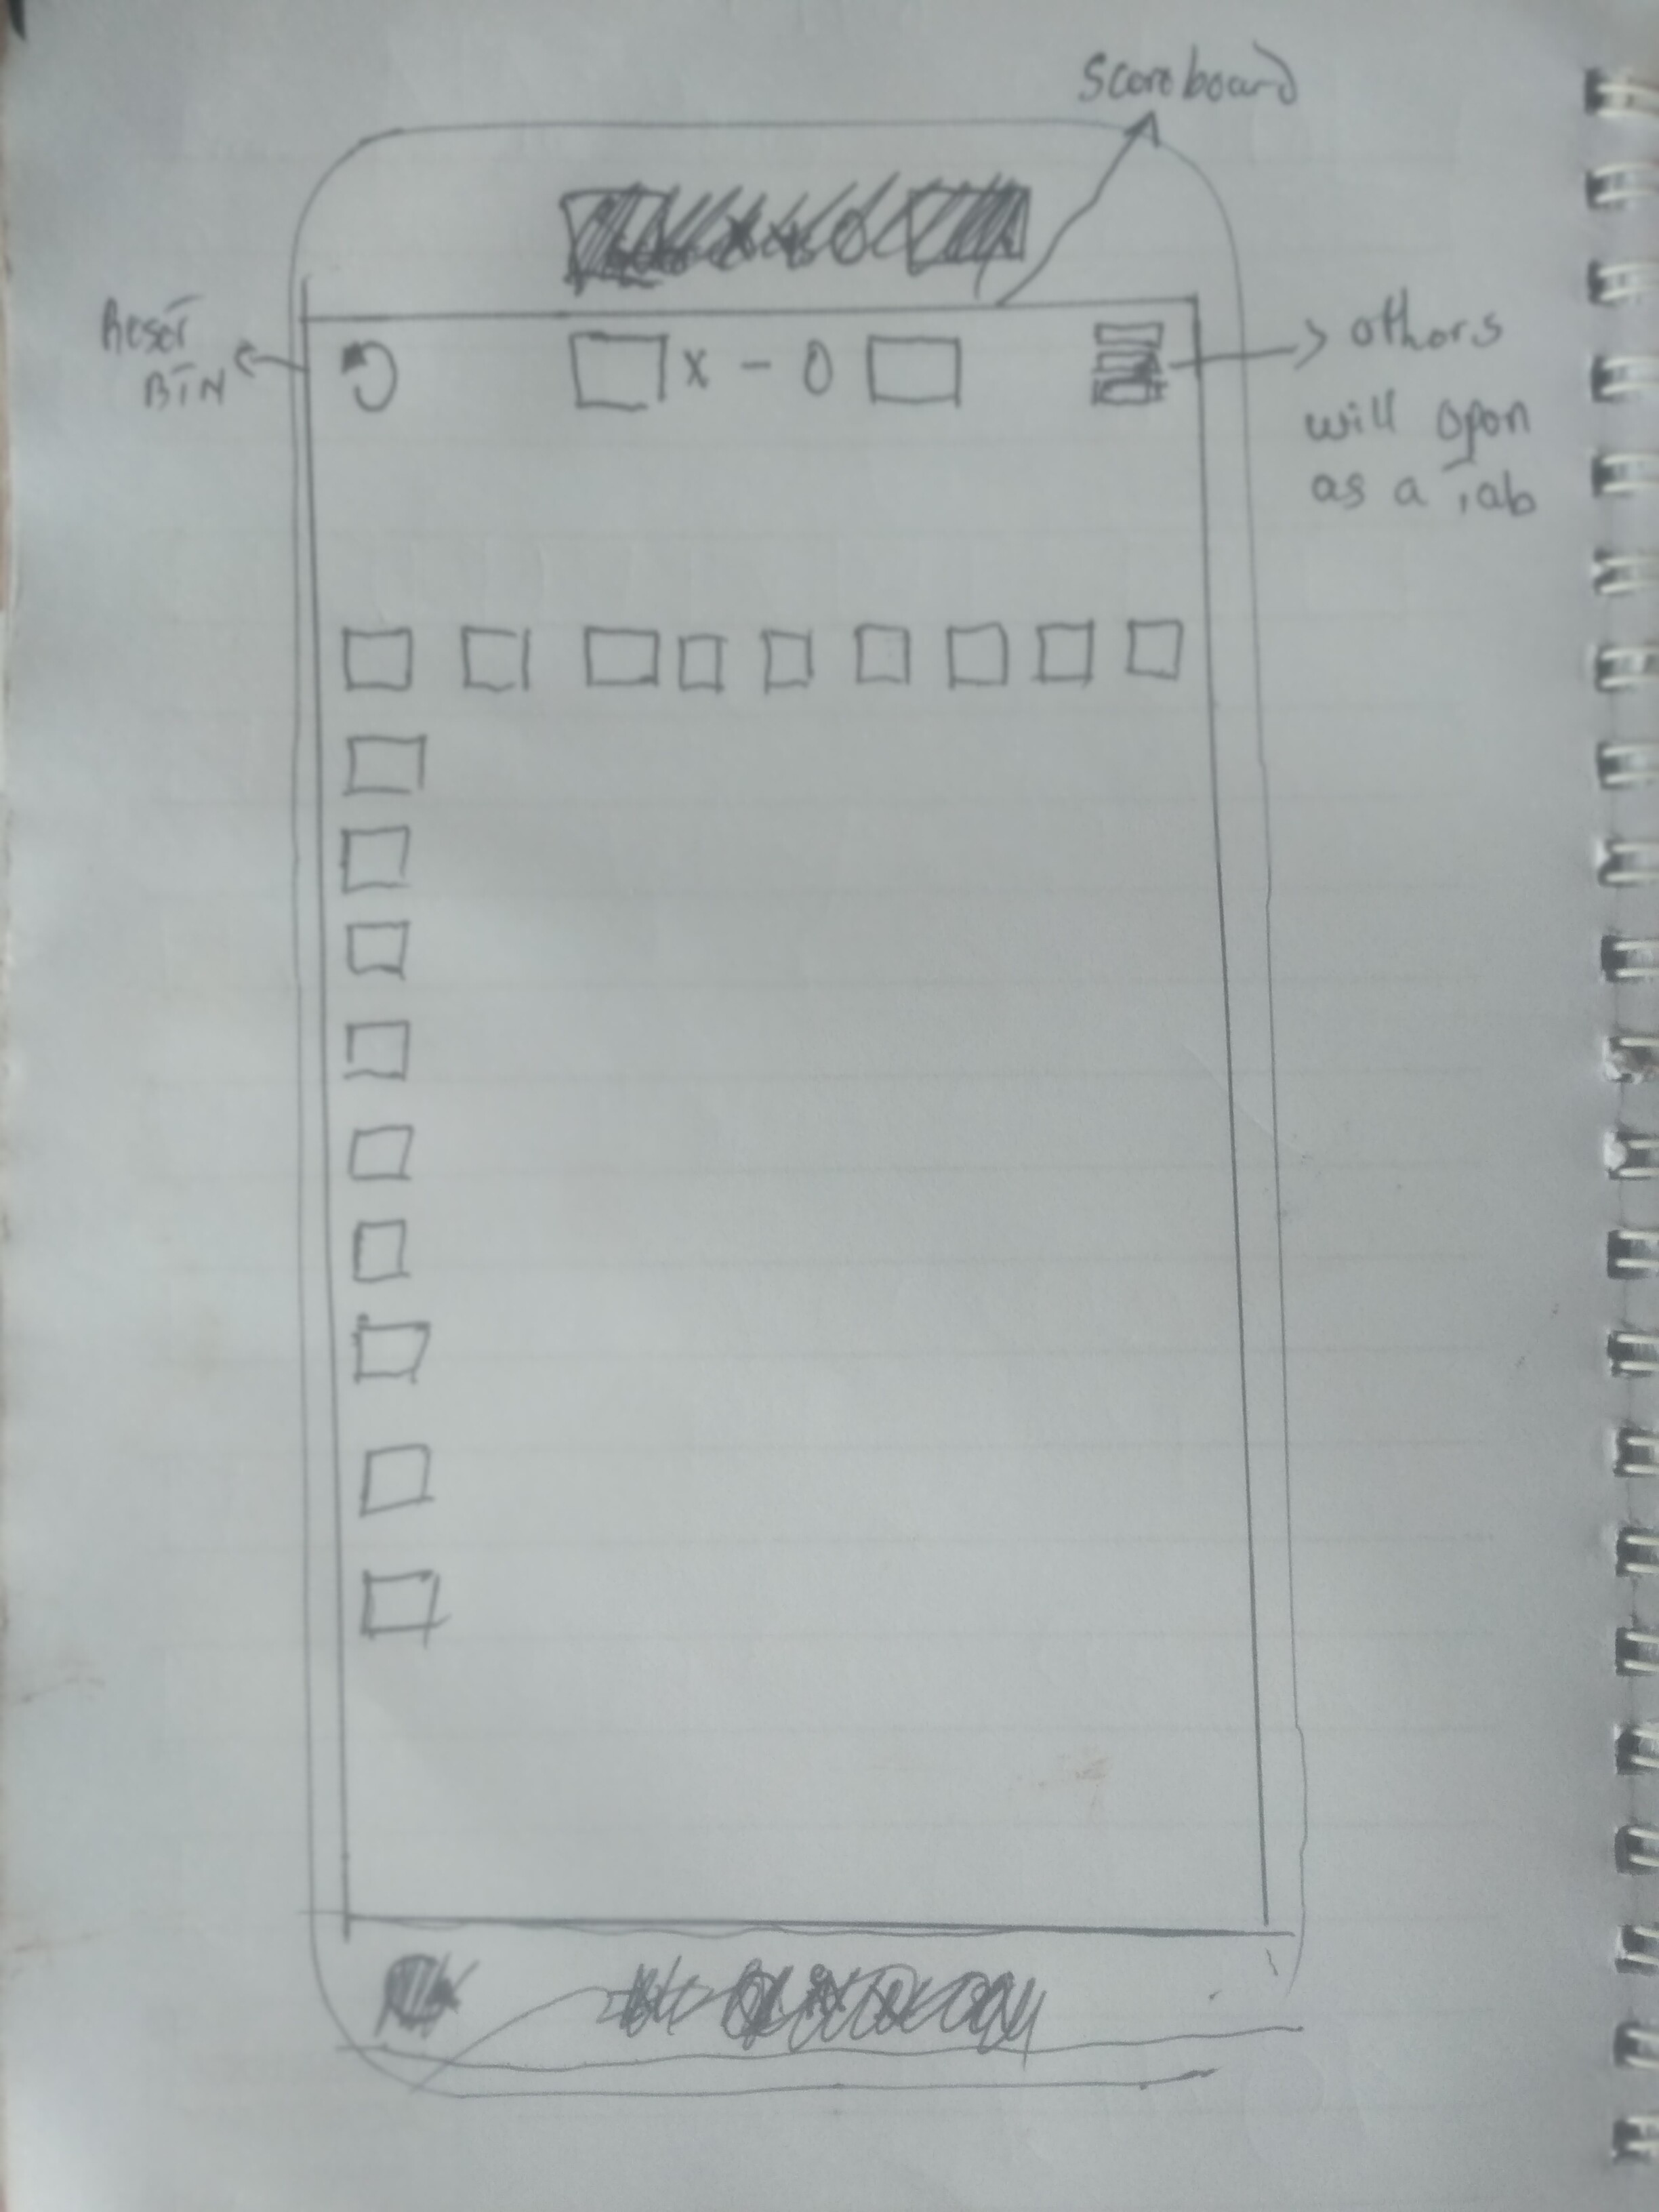 Scoreboard
Reset
BTN
x - 0
others
will open
as a Tab